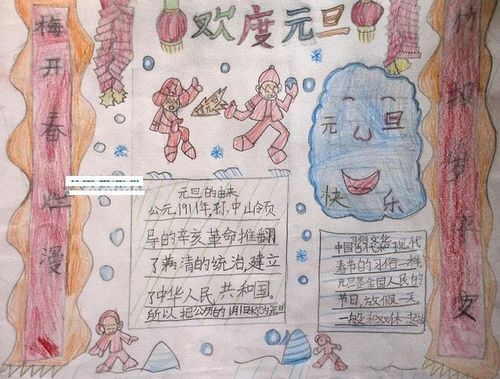 欢度元旦
梅开春烂漫
竹报岁平安
元旦
快乐
元旦的由来
公元1911年,孙中山领
导的辛亥革命推翻
了满清的统治,建立
了中华人民共和国。
所以把公历的1月1日称为元旦
中国
现代
春节的习俗一样
元旦是全国人民的
节日,放假一天
一般和双休